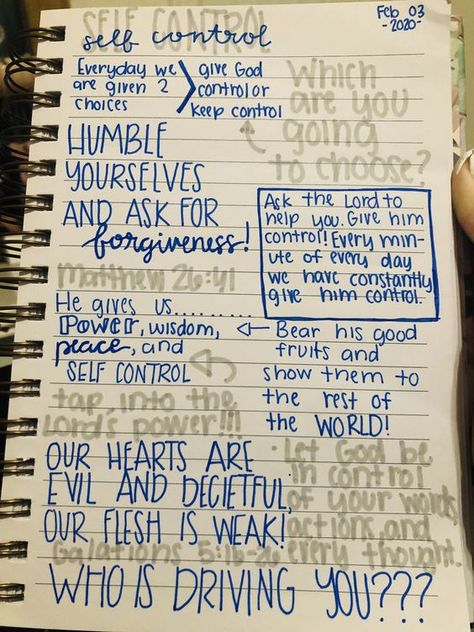 Feb 03
-2020-
SELF CONTROL
self control
Everyday we
are given 2
choices
give God
control or
keep control
Which
are you
going
to choose?
HUMBLE
YOURSELVES
AND ASK FOR
forgiveness!
Ask the Lord to
help you. Give him
control! Every min-
ute of every day
we have constantly
give him control.
Matthew 26:41
He gives us.........
Power, wisdom,
peace, and
SELF CONTROL
Bear his good
fruits and
show them to
the rest of
the WORLD!
tap into the
Lord's power!!!
OUR HEARTS ARE
EVIL AND DECIETFUL,
OUR FLESH IS WEAK!
• Let God be
in control
of your words,
actions, and
every thought.
Galations 5:16-26
WHO IS DRIVING YOU???